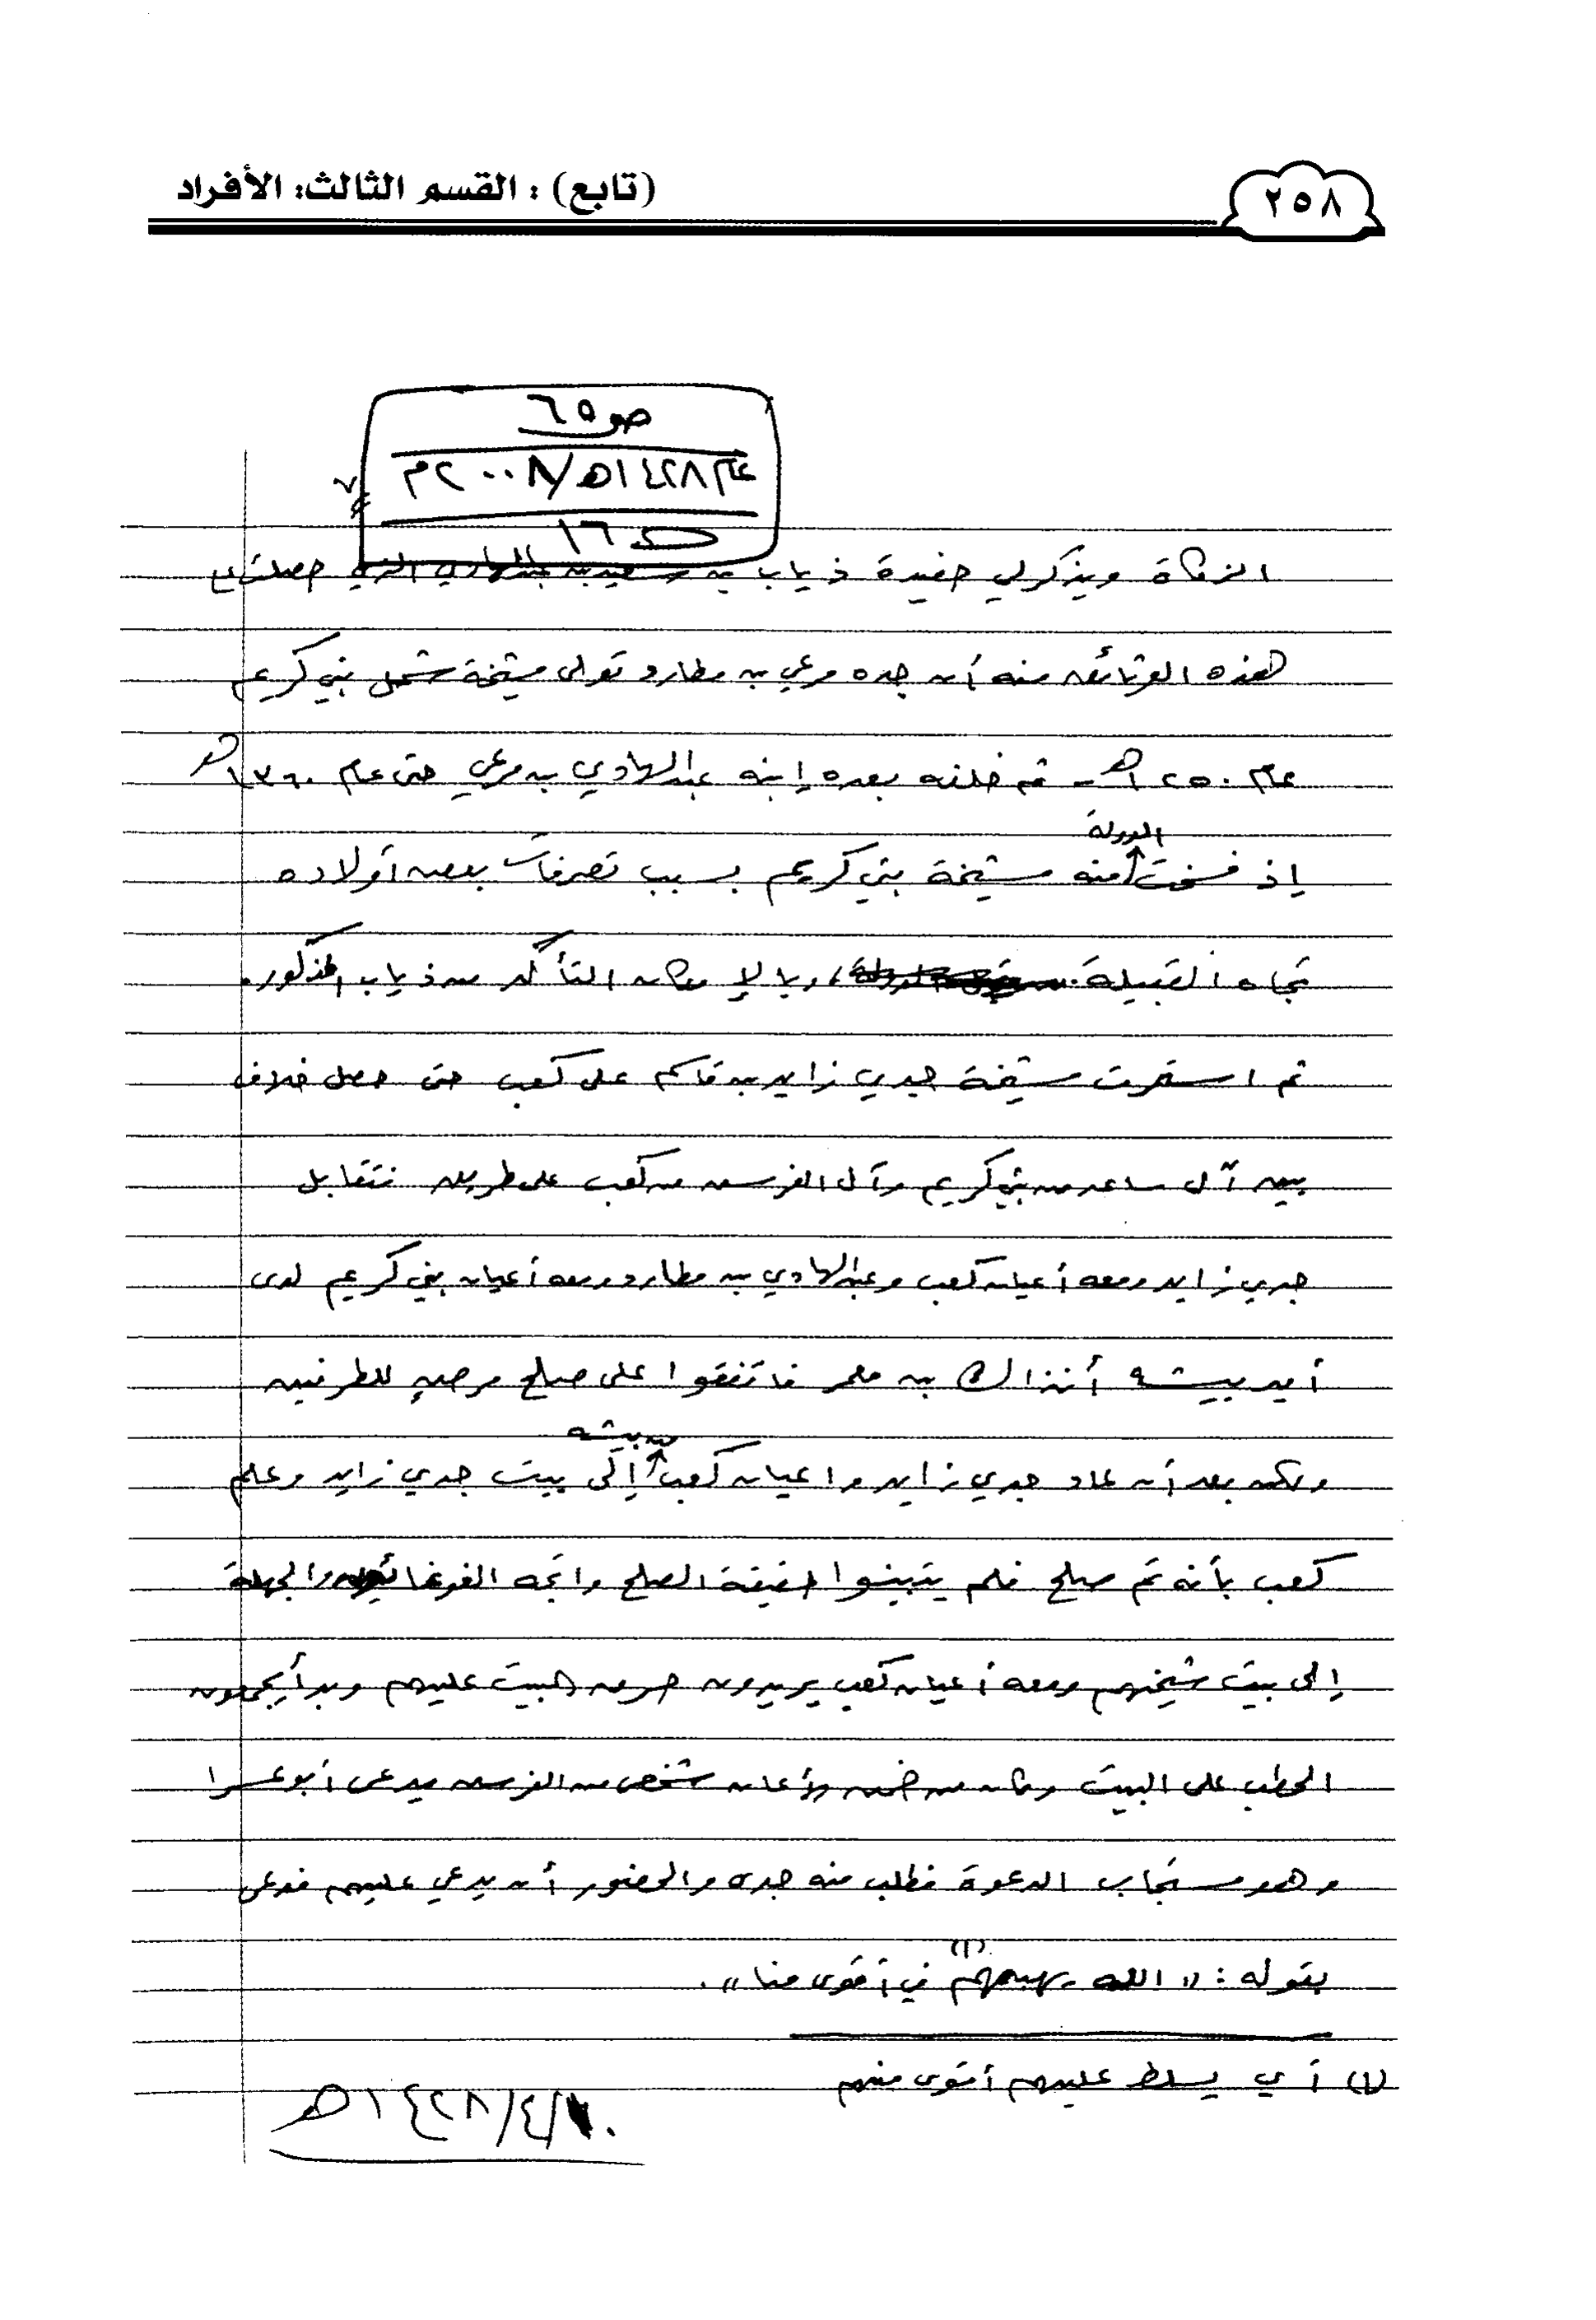 (تابع) : القسم الثالث: الأفراد
٢٥٨
ص ٦٥
عام ١٤٢٨هـ/٢٠٠٨م
حـ ١٦
الزكاة ويذكر لي حفيده ذياب بن سعيد بن عبدالهادي الذي حصلت على
هذه الوثائق منه أن جده مرعي بن مطارد تولى مشيخة شمل بني كريم
عام ١٢٥٠هـ - ثم خلفه بعده إبنه عبدالهادي بن مرعي حتى عام ١٣٦٠هـ
إذ فسخت الدولة منه مشيخة بني كريم بسبب تصرفات بعض أولاده
تجاه القبيلة، وبالإمكان التأكد من ذياب المذكور.
ثم استمرت مشيخة جدي زايد بن قاسم على كعب حتى حصل خلاف
بين آل ساعد من بني كريم وآل الفرسن من كعب على طريق فتقابل
جدي زايد ومعه أعيان كعب وعبدالهادي بن مطارد ومعه أعيان بني كريم لدى
أمير بيشه أنذاك بن معمر فاتفقوا على صلح مرضي للطرفين
ولكن بعد أن عاد جدي زايد واعيان كعب من بيشه إلى بيت جدي زايد وعلم
كعب بأنه تم صلح فلم يتبينوا حقيقة الصلح واتجه الغوغائيون والجهلة
إلى بيت شيخهم ومعه أعيان كعب يريدون حرق البيت عليهم وبدأ يجمعون
الحطب على البيت وكان من ضمن الأعيان شخص من الفرسن يدعى أبو عسرا
وهو مستجاب الدعوة فطلب منه جدي والحضور أن يدعي عليهم فدعى
بقوله : «الله يهبعهم (١) في أقوى منا».
(١) أي يسلط عليهم أقوى منهم
١٤٢٨/٤/١٠هـ